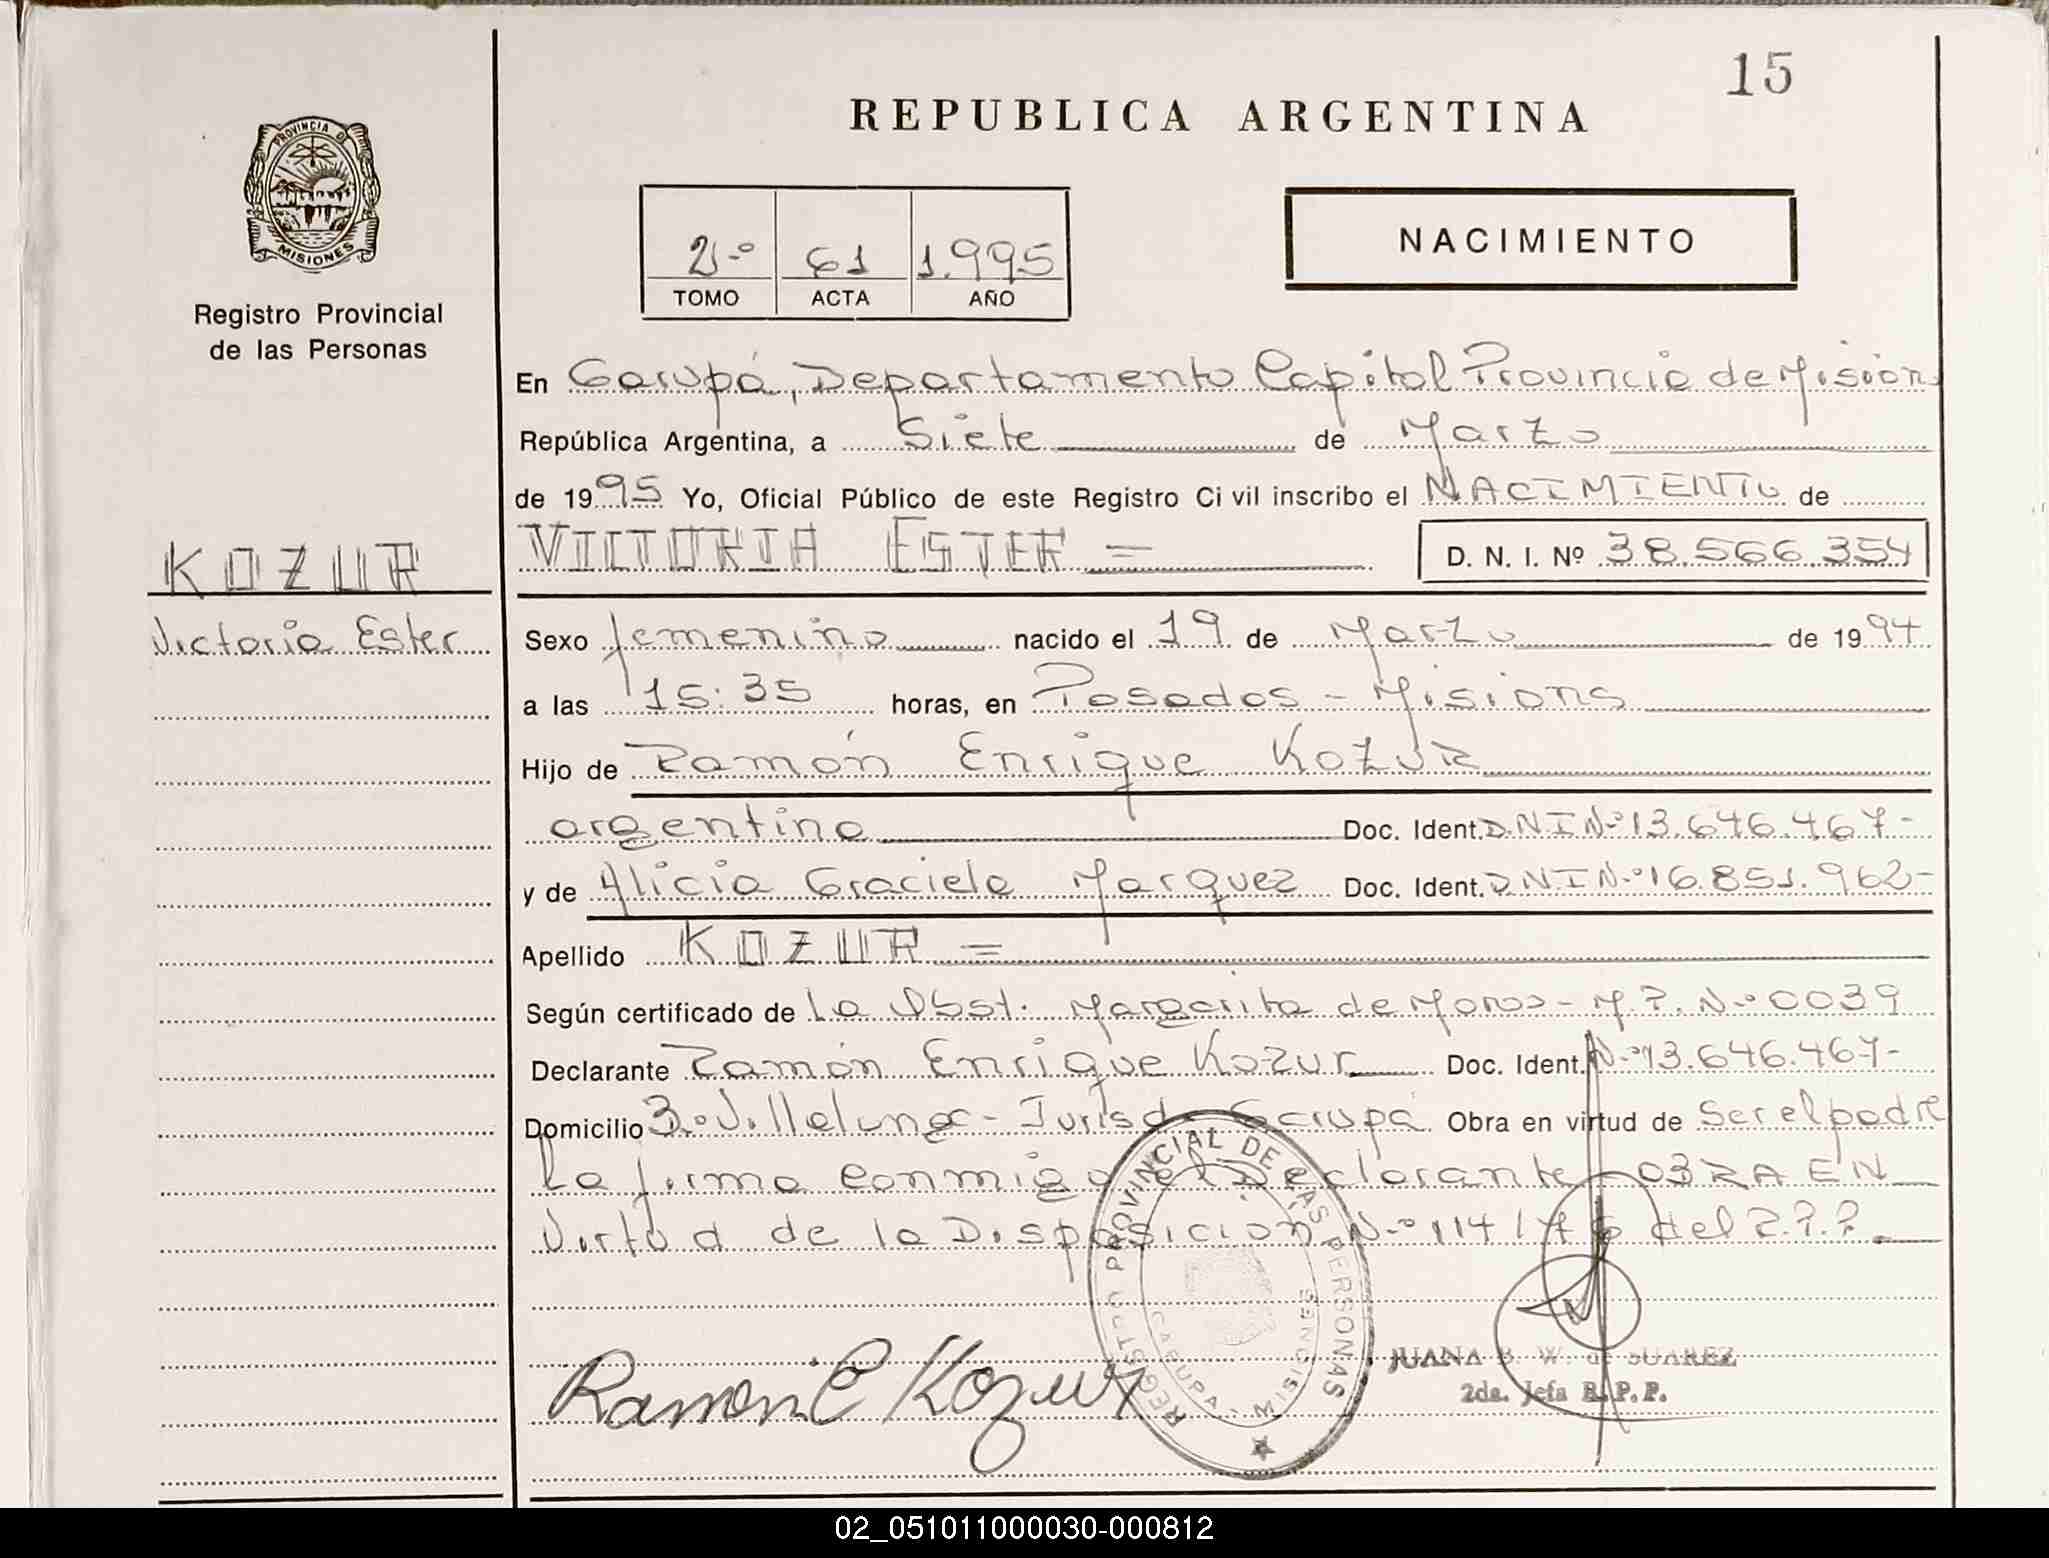 15
REPUBLICA ARGENTINA
PROVINCIA DE
MISIONES
Registro Provincial
de las Personas
2º 61 1.995
TOMO ACTA AÑO
NACIMIENTO
En Garupá, Departamento Capital Provincia de Mision
República Argentina, a Siete de Marzo
de 1995 Yo, Oficial Público de este Registro Civil inscribo el NACIMIENTO de
KOZUR
Victoria Ester
VICTORIA ESTER = D. N. I. Nº 38.566.354
Sexo femenino nacido el 19 de Marzo de 1994
a las 15:35 horas, en Posadas - Misions
Hijo de Ramón Enrique Kozur
argentino Doc. Ident. DNI Nº 13.646.467-
y de Alicia Graciela Marquez Doc. Ident. DNI Nº 16.851.962-
Apellido KOZUR =
Según certificado de La Obst. Margarita de - M.P. Nº 0039
Declarante Ramón Enrique Kozur Doc. Ident. Nº 13.646.467-
Domicilio Bº Villalonga - Jurisd. Garupá Obra en virtud de Ser el padre
La firma conmigo el Declarante - OBRA EN
Virtud de la Disposición Nº 114/76 del R.P.P.
REGISTRO PROVINCIAL DE LAS PERSONAS
GARUPA - MISIONES
Ramon E Kozur
JUANA B. W. de SUAREZ
2da. Jefa R.P.P.
02_051011000030-000812